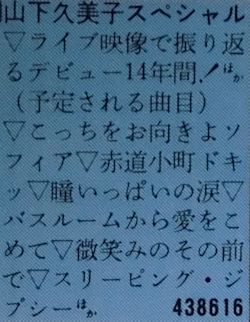 山下久美子スペシャル
▽ライブ映像で振り返
るデビュー14年間!ほか
(予定される曲目)
▽こっちをお向きよソ
フィア▽赤道小町ドキ
ッ▽瞳いっぱいの涙▽
バスルームから愛をこ
めて▽微笑みのその前
で▽スリーピング・ジ
プシーほか 438616